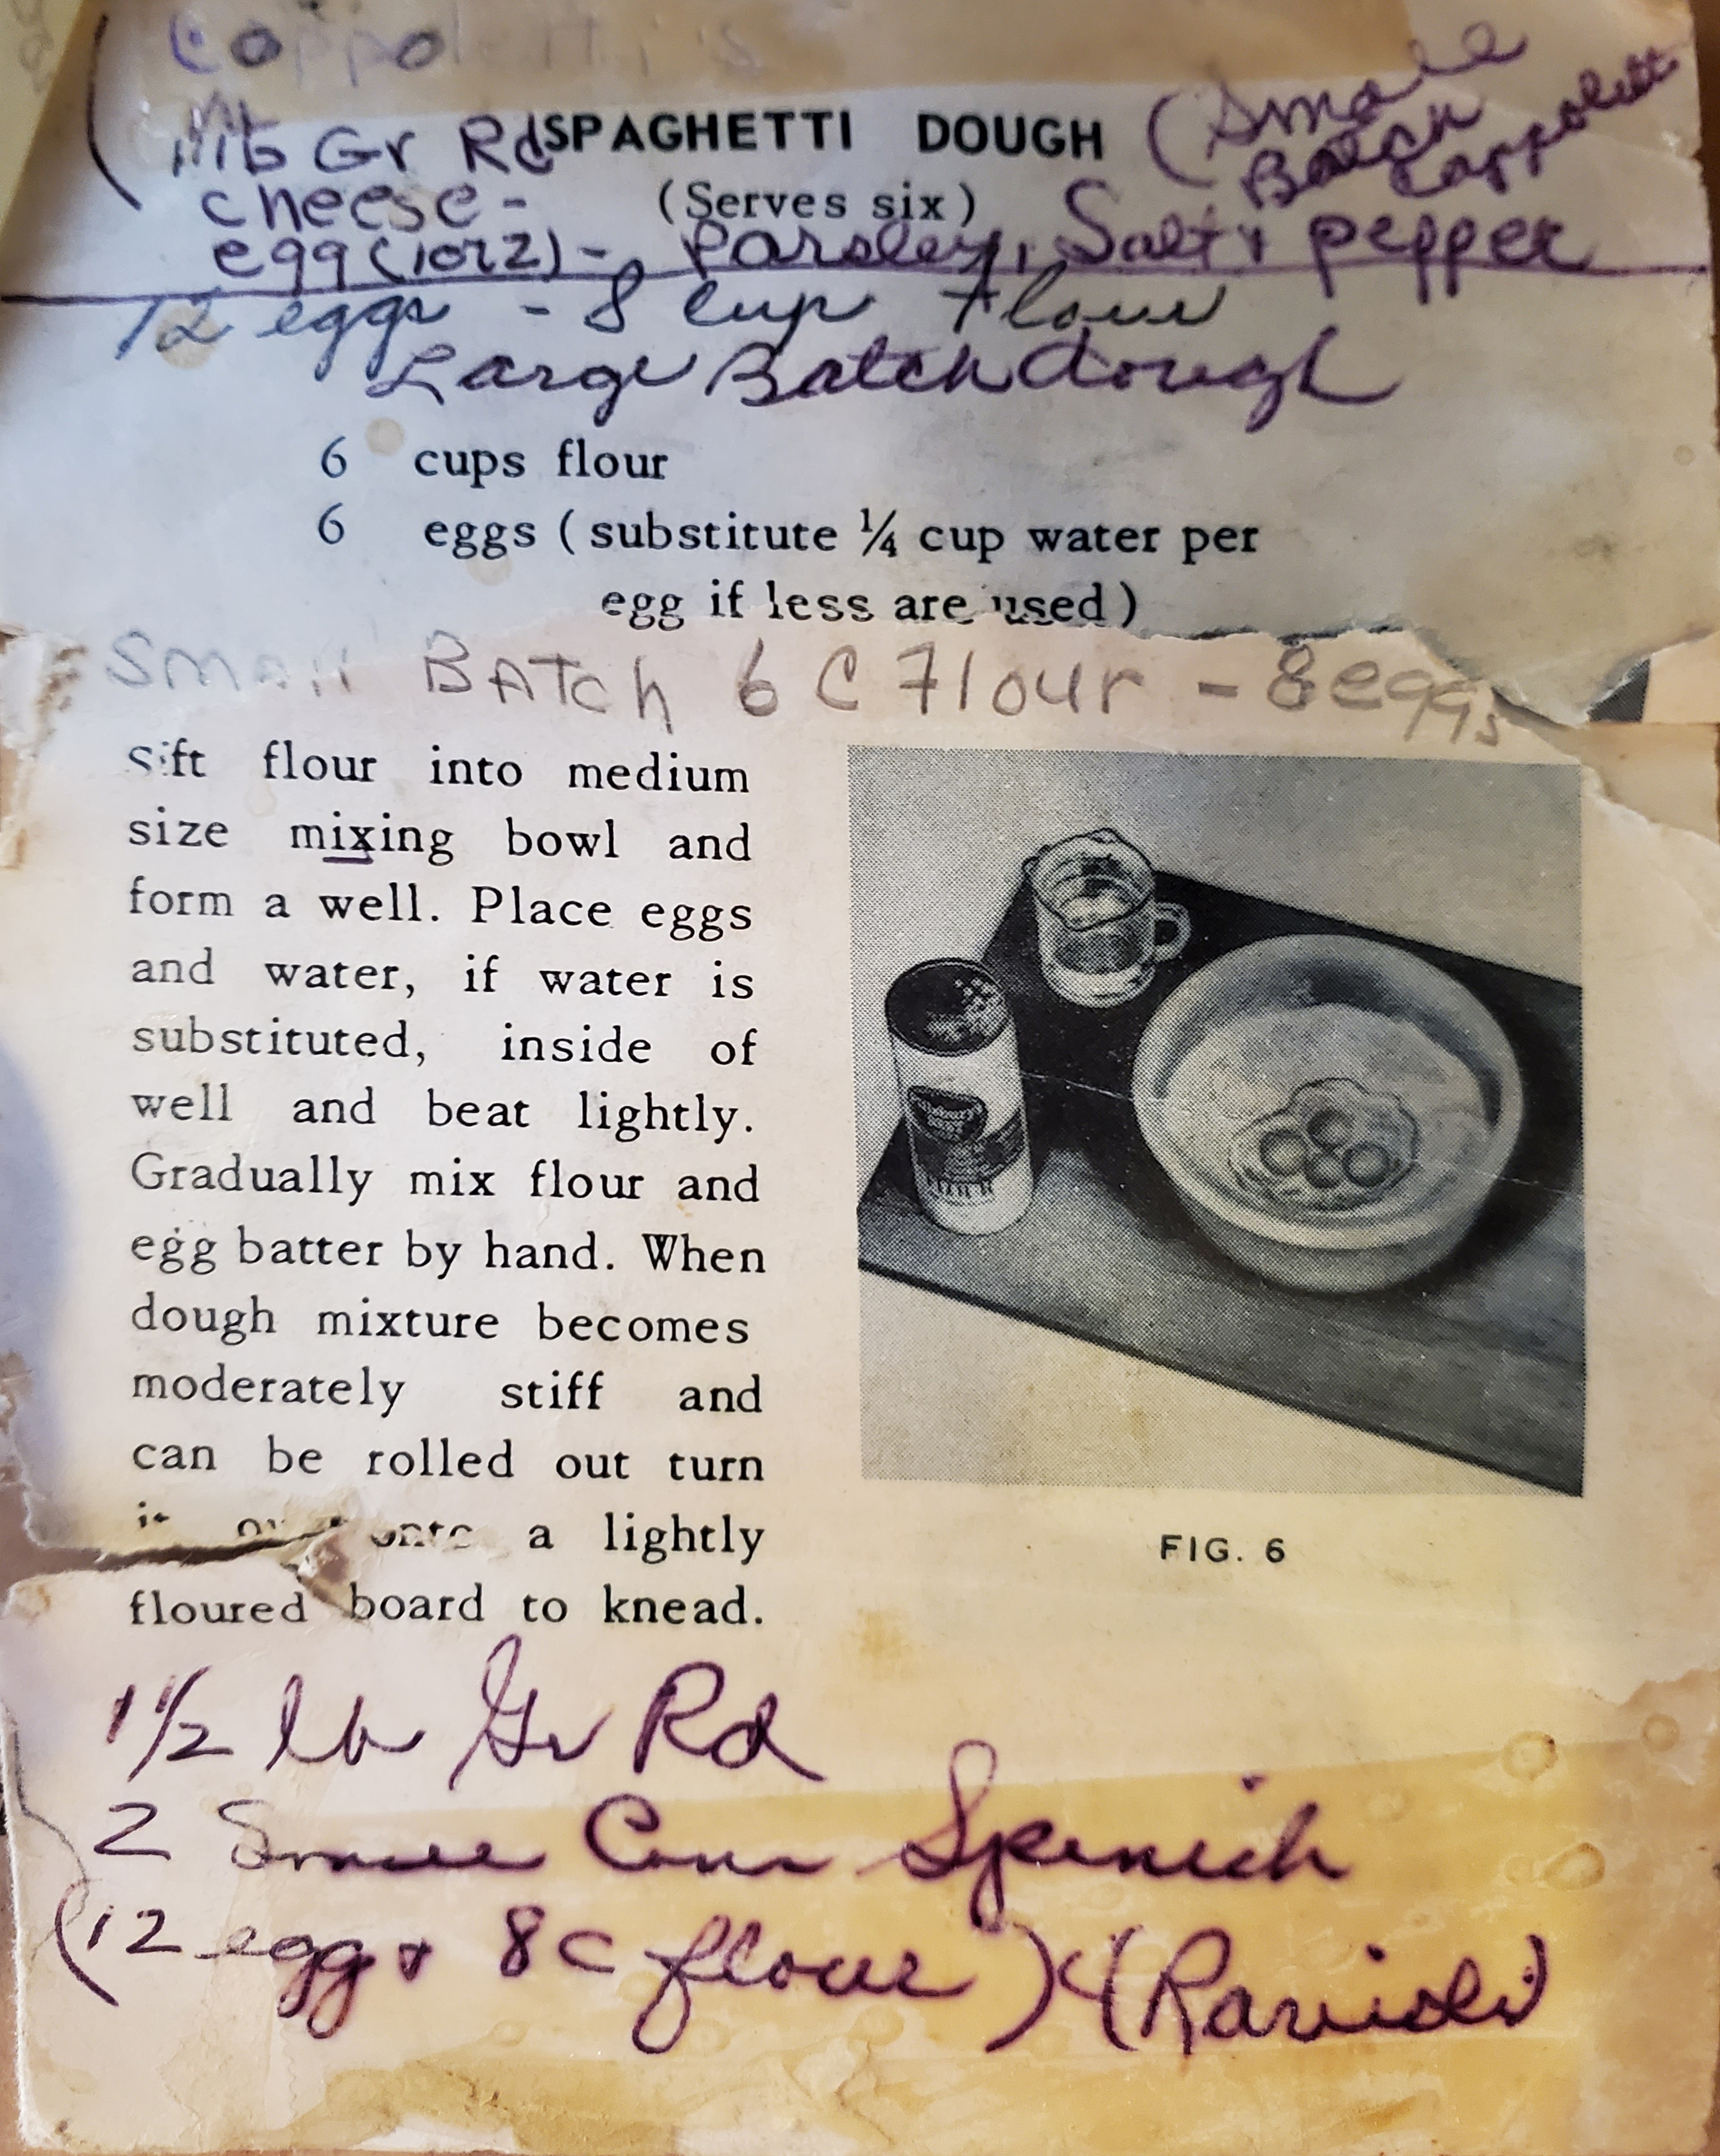 Coppoletti's
(Small
Batch
Cappoletti
1 lb Gr Rd SPAGHETTI DOUGH
cheese - (Serves six)
egg (1 or 2) - Parsley, Salt & pepper
12 eggs - 8 cup Flour
Large Batch dough
6 cups flour
6 eggs ( substitute ¼ cup water per
egg if less are used )
Small BATCh 6 C Flour - 8 eggs
Sift flour into medium
size mixing bowl and
form a well. Place eggs
and water, if water is
substituted, inside of
well and beat lightly.
Gradually mix flour and
egg batter by hand. When
dough mixture becomes
moderately stiff and
can be rolled out turn
it over onto a lightly
floured board to knead.
FIG. 6
1½ lb Gr Rd
2 Small Can Spinich
(12 egg & 8 c flour) (Ravioli)